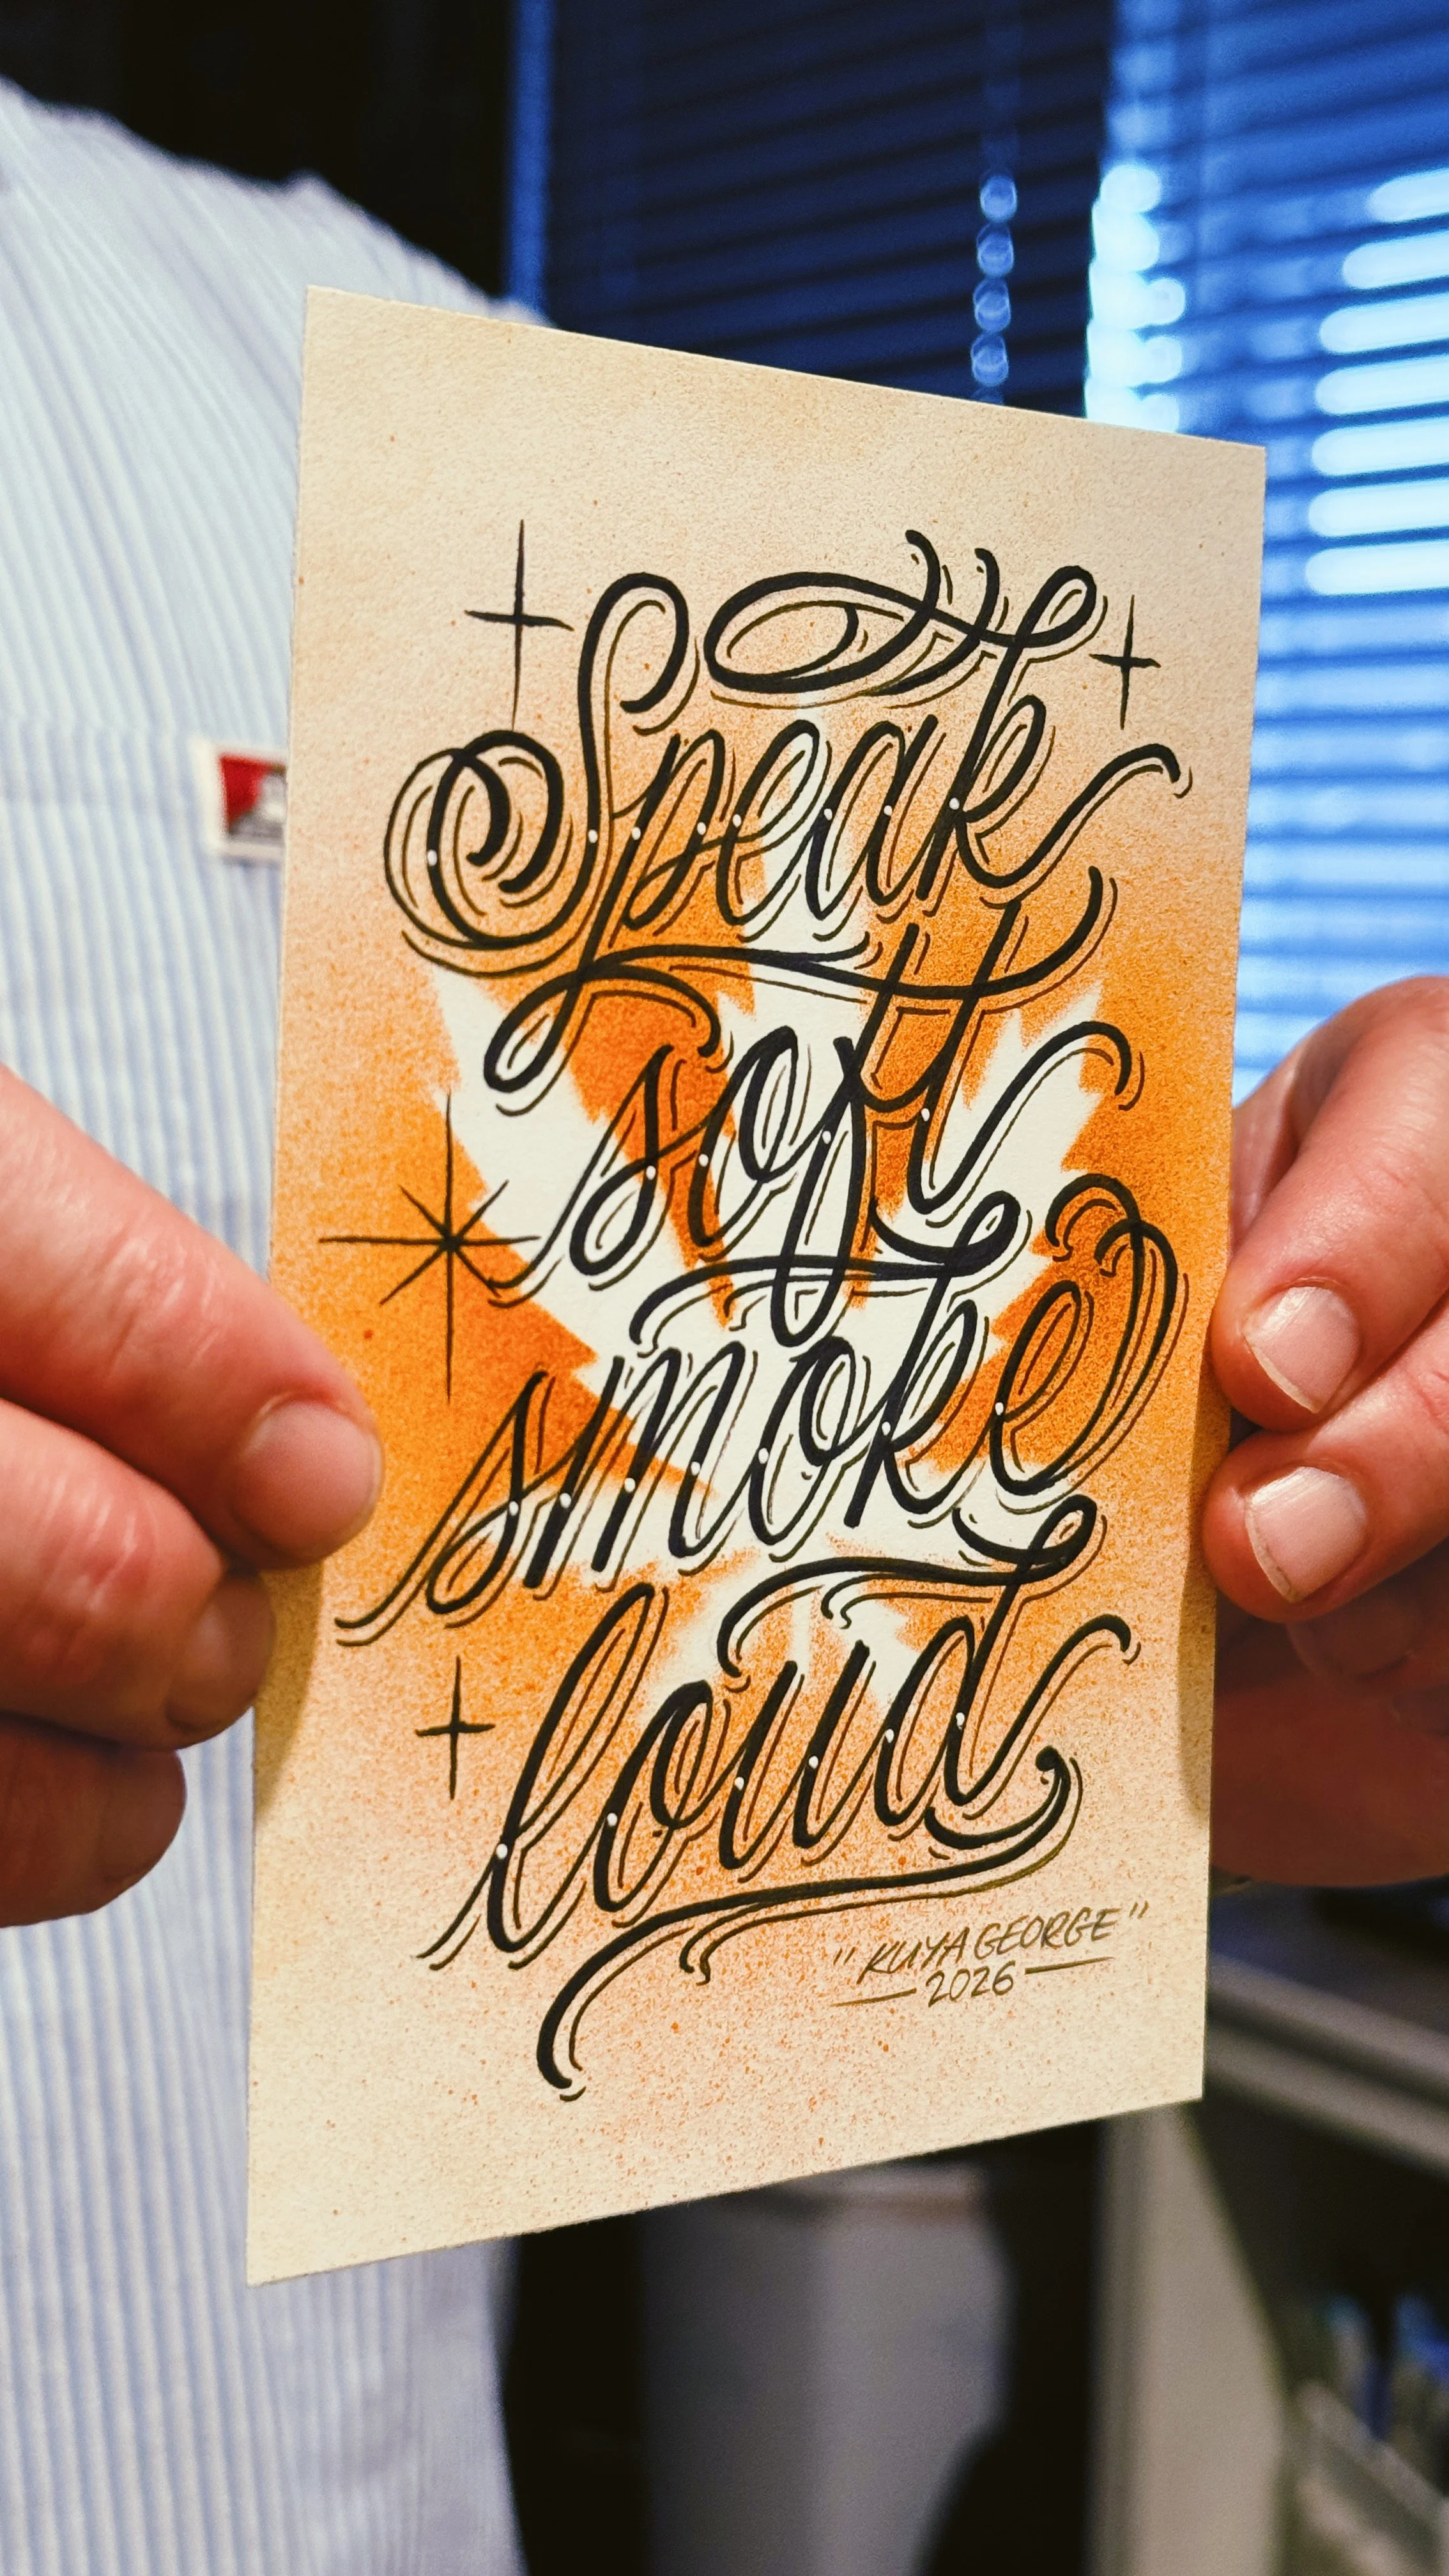 Speak
soft
smoke
loud
"KUYA GEORGE"
2026